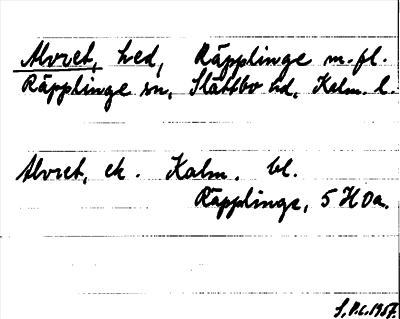 Alvret, hed, Räpplinge m. fl.
Räpplinge sn, Slättbo hd, Kalm. l.
Alvret, ek. Kalm. bl.
Räpplinge, 5 H Oa.
1957.